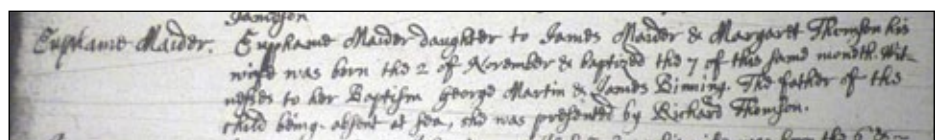 Jameson
Euphame Maider. Euphame Maider daughter to James Maider & Margaret Thomson his
wife was born the 2 of November & baptized the 7 of this same moneth. Wit-
nesses to her Baptism George Martin & James Binning. The father of the
child being absent at sea, she was presented by Richard Thomson.